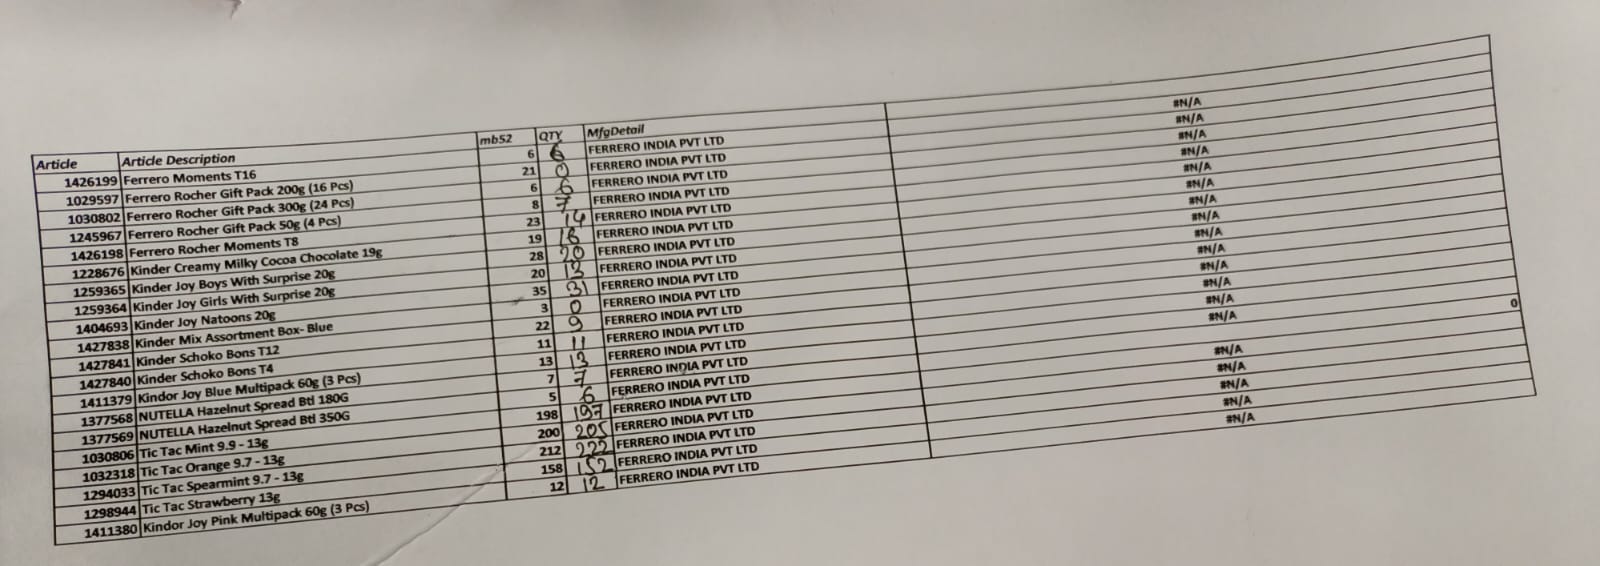 Article Article Description mb52 QTY MfgDetail
1426199 Ferrero Moments T16 6 6 FERRERO INDIA PVT LTD #N/A
1029597 Ferrero Rocher Gift Pack 200g (16 Pcs) 21 0 FERRERO INDIA PVT LTD #N/A
1030802 Ferrero Rocher Gift Pack 300g (24 Pcs) 6 6 FERRERO INDIA PVT LTD #N/A
1245967 Ferrero Rocher Gift Pack 50g (4 Pcs) 8 7 FERRERO INDIA PVT LTD #N/A
1426198 Ferrero Rocher Moments T8 23 14 FERRERO INDIA PVT LTD #N/A
1228676 Kinder Creamy Milky Cocoa Chocolate 19g 19 18 FERRERO INDIA PVT LTD #N/A
1259365 Kinder Joy Boys With Surprise 20g 28 20 FERRERO INDIA PVT LTD #N/A
1259364 Kinder Joy Girls With Surprise 20g 20 13 FERRERO INDIA PVT LTD #N/A
1404693 Kinder Joy Natoons 20g 35 31 FERRERO INDIA PVT LTD #N/A
1427838 Kinder Mix Assortment Box- Blue 3 0 FERRERO INDIA PVT LTD #N/A
1427841 Kinder Schoko Bons T12 22 9 FERRERO INDIA PVT LTD #N/A
1427840 Kinder Schoko Bons T4 11 11 FERRERO INDIA PVT LTD #N/A
1411379 Kindor Joy Blue Multipack 60g (3 Pcs) 13 13 FERRERO INDIA PVT LTD #N/A
1377568 NUTELLA Hazelnut Spread Btl 180G 7 7 FERRERO INDIA PVT LTD #N/A
1377569 NUTELLA Hazelnut Spread Btl 350G 5 6 FERRERO INDIA PVT LTD 0
1030806 Tic Tac Mint 9.9 - 13g 198 197 FERRERO INDIA PVT LTD #N/A
1032318 Tic Tac Orange 9.7 - 13g 200 205 FERRERO INDIA PVT LTD #N/A
1294033 Tic Tac Spearmint 9.7 - 13g 212 222 FERRERO INDIA PVT LTD #N/A
1298944 Tic Tac Strawberry 13g 158 152 FERRERO INDIA PVT LTD #N/A
1411380 Kindor Joy Pink Multipack 60g (3 Pcs) 12 12 FERRERO INDIA PVT LTD #N/A